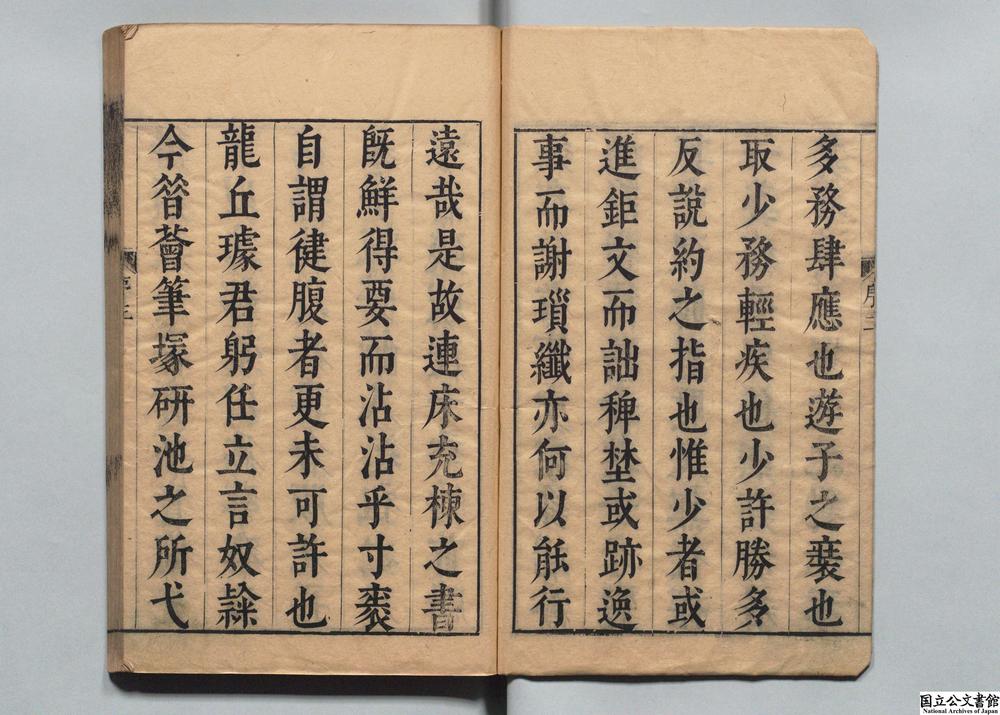 多務肆應也遊子之裝也
取少務輕疾也少許勝多
反說約之指也惟少者或
進鉅文而詘稗埜或跡逸
事而謝瑣纖亦何以能行
序二
遠哉是故連床充棟之書
旣鮮得要而沾沾乎寸裘
自謂健腹者更未可許也
龍丘璩君躬任立言奴隸
今晉薈筆塚研池之所弋
序三
国立公文書館
National Archives of Japan